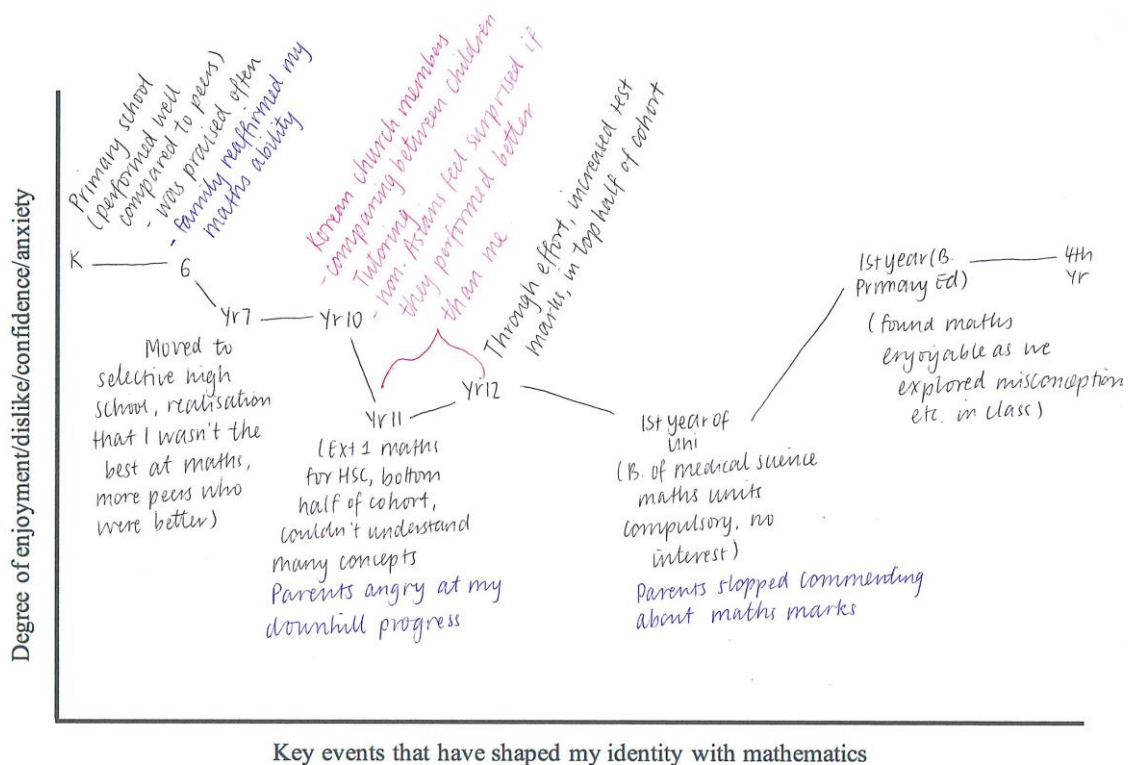 Degree of enjoyment/dislike/confidence/anxiety
Primary school
(performed well
compared to peers)
- was praised often
- family reaffirmed my
maths ability
K
6
Yr7
Moved to
selective high
school, realisation
that I wasn't the
best at maths,
more peers who
were better)
Yr10
Korean church members
- comparing between children
Tutoring
- non-Asians feel surprised if
they performed better
than me
Yr11
(Ext 1 maths
for HSC, bottom
half of cohort,
couldn't understand
many concepts
Parents angry at my
downhill progress
Yr12
Through effort, increased test
marks, in top half of cohort
1st year of
Uni
(B. of medical science
maths units
compulsory, no
interest)
Parents stopped commenting
about maths marks
1st year (B.
Primary Ed)
(found maths
enjoyable as we
explored misconception
etc. in class)
4th
Yr
Key events that have shaped my identity with mathematics